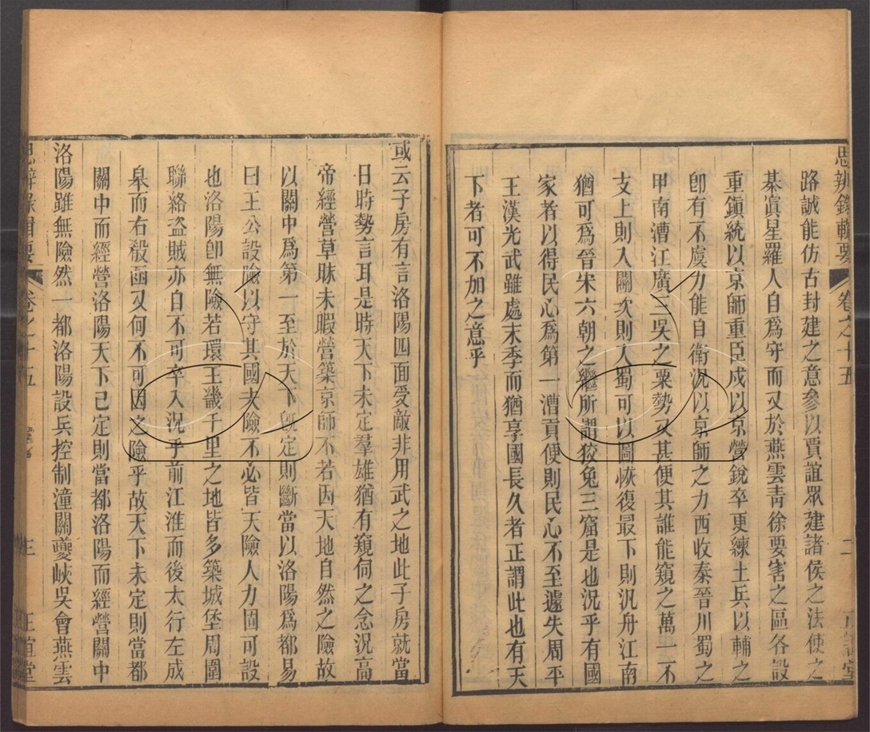 思辨錄輯要 卷之十五 二 正誼堂
路誠能仿古封建之意參以賈誼眾建諸侯之法使之
棊寘星羅人自爲守而又於燕雲青徐要害之區各設
重鎭統以京師重臣成以京營銳卒更練土兵以輔之
卽有不虞力能自衛況以京師之力西收秦晉川蜀之
甲南漕江廣三吳之粟勢又甚便其誰能窺之萬一不
支上則入關次則入蜀可以圖恢復最下則汎舟江南
猶可爲晉宋六朝之繼所謂狡兔三窟是也況乎有國
家者以得民心爲第一漕貢便則民心不至遽失周平
王漢光武雖處末季而猶享國長久者正謂此也有天
下者可不加之意乎
或云子房有言洛陽四面受敵非用武之地此子房就當
日時勢言耳是時天下未定羣雄猶有窺伺之念況高
帝經營草昧未暇營築京師不若因天地自然之險故
以關中爲第一至於天下旣定則斷當以洛陽爲都易
曰王公設險以守其國夫險不必皆天險人力固可設
也洛陽卽無險若環王畿千里之地皆多築城堡周圍
聯絡盜賊亦自不可卒入況乎前江淮而後太行左成
皋而右殽函又何不可因之險乎故天下未定則當都
關中而經營洛陽天下已定則當都洛陽而經營關中
洛陽雖無險然一都洛陽設兵控制潼關夔峽吳會燕雲
思辨錄輯要 卷之十五 三 正誼堂